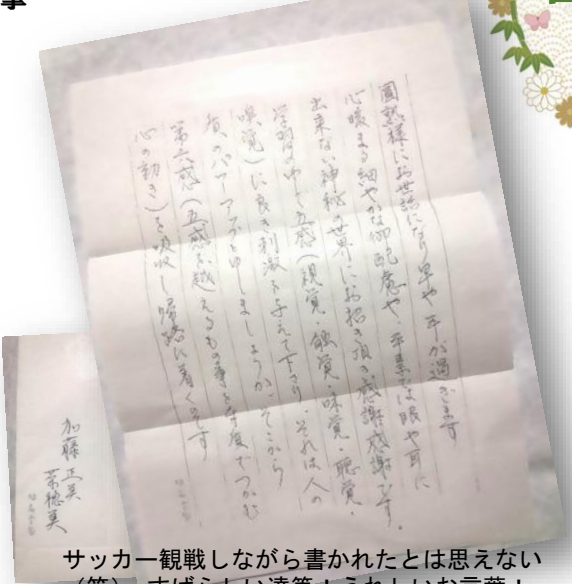 圓熟様にお世話になり早や一年が過ぎます
心暖まる細やかな御配慮や、平素では眼や耳に
出来ない神秘の世界にお招き頂き感謝感謝です。
学習の中で五感(視覚・触覚・味覚・聴覚・
嗅覚)に良き刺激を与えて下さり、それは人の
質のパワーアップと申しましょうか、そこから
第六感(五感を越えるもの事を
心の動き)を吸収し帰路に着くのです
加藤正美
菜穂美
サッカー観戦しながら書かれたとは思えない
(笑)すばらしい達筆!うれしいお言葉!